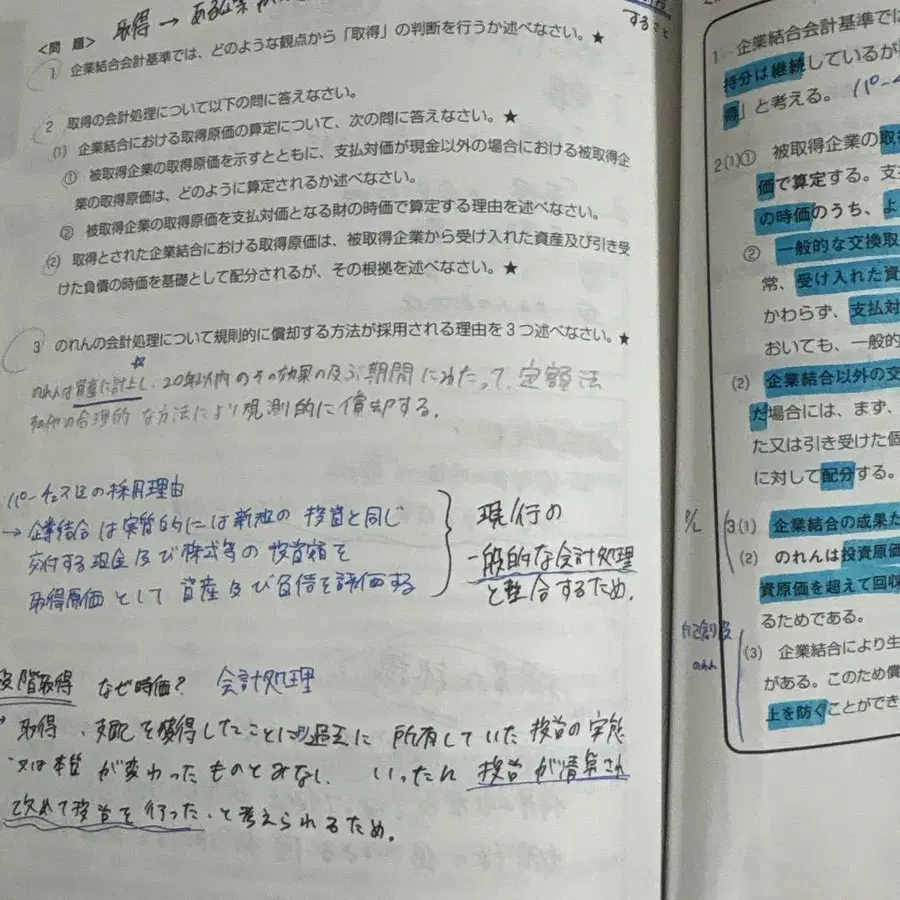 取得 → ある企業が
すること
<問 題>
1 企業結合会計基準では、どのような観点から「取得」の判断を行うか述べなさい。★
2 取得の会計処理について以下の問に答えなさい。
(1) 企業結合における取得原価の算定について、次の問に答えなさい。★
① 被取得企業の取得原価を示すとともに、支払対価が現金以外の場合における被取得企
業の取得原価は、どのように算定されるか述べなさい。
② 被取得企業の取得原価を支払対価となる財の時価で算定する理由を述べなさい。
(2) 取得とされた企業結合における取得原価は、被取得企業から受け入れた資産及び引き受
けた負債の時価を基礎として配分されるが、その根拠を述べなさい。★
3 のれんの会計処理について規則的に償却する方法が採用される理由を3つ述べなさい。★
のれんは資産に計上し、20年以内のその効果の及ぶ期間にわたって、定額法
その他の合理的な方法により規則的に償却する。
パーチェス法の採用理由
→ 企業結合は実質的には新規の投資と同じ
交付する現金及び株式等の投資額を
取得原価として資産及び負債を評価する
現行の
一般的な会計処理
と整合するため。
段階取得 なぜ時価? 会計処理
取得、支配を獲得したことにより過去に所有していた投資の実態
又は本質が変わったものとみなし、いったん投資が清算され
改めて投資を行った、と考えられるため。
1 企業結合会計基準では
持分は継続しているが
得」と考える。 パー
2(1)① 被取得企業の取
価で算定する。支
の時価のうち、よ
② 一般的な交換取
常、受け入れた資
かわらず、支払対
おいても、一般的
(2) 企業結合以外の交
だ場合には、まず、
た又は引き受けた個
に対して配分する。
P/L
3(1) 企業結合の成果た
(2) のれんは投資原価
資原価を超えて回収
るためである。
自己創設
のれん
(3) 企業結合により生
がある。このため償
上を防ぐことができ